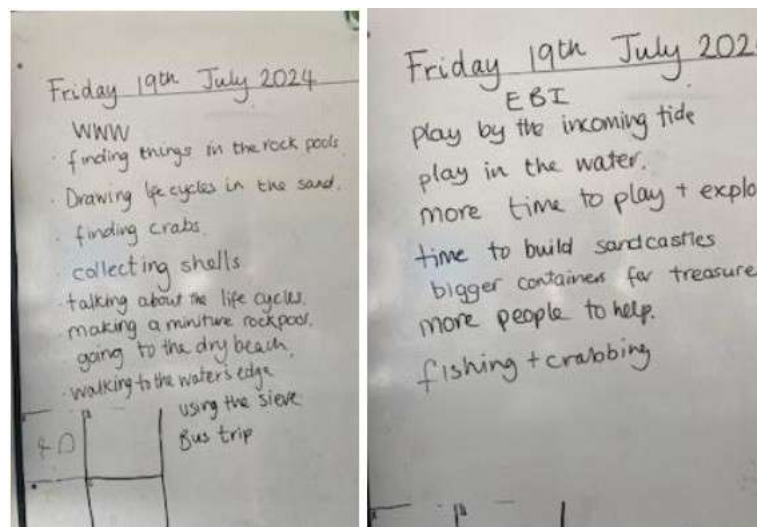 Friday 19th July 2024
WWW
· finding things in the rock pools.
· Drawing life cycles in the sand.
· finding crabs.
· collecting shells
· talking about the life cycles.
making a miniture rockpool.
going to the dry beach.
· walking to the water's edge
using the sieve
Bus trip
Friday 19th July 202
EBI
play by the incoming tide
play in the water.
more time to play + explo
time to build sandcastles
bigger containers for treasure
more people to help.
fishing + crabbing